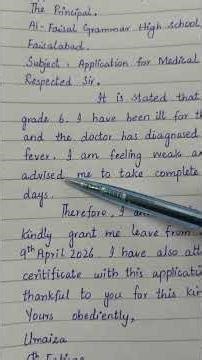 The Principal,
Al-Faisal Grammar High School,
Faisalabad.
Subject: Application for Medical
Respected Sir,
It is stated that
grade 6. I have been ill for th
and the doctor has diagnosed
fever. I am feeling weak an
advised me to take complete
days.
Therefore, I
kindly grant me leave from
9th April 2026. I have also att
certificate with this applicati
thankful to you for this kin
Yours obediently,
Umaiza